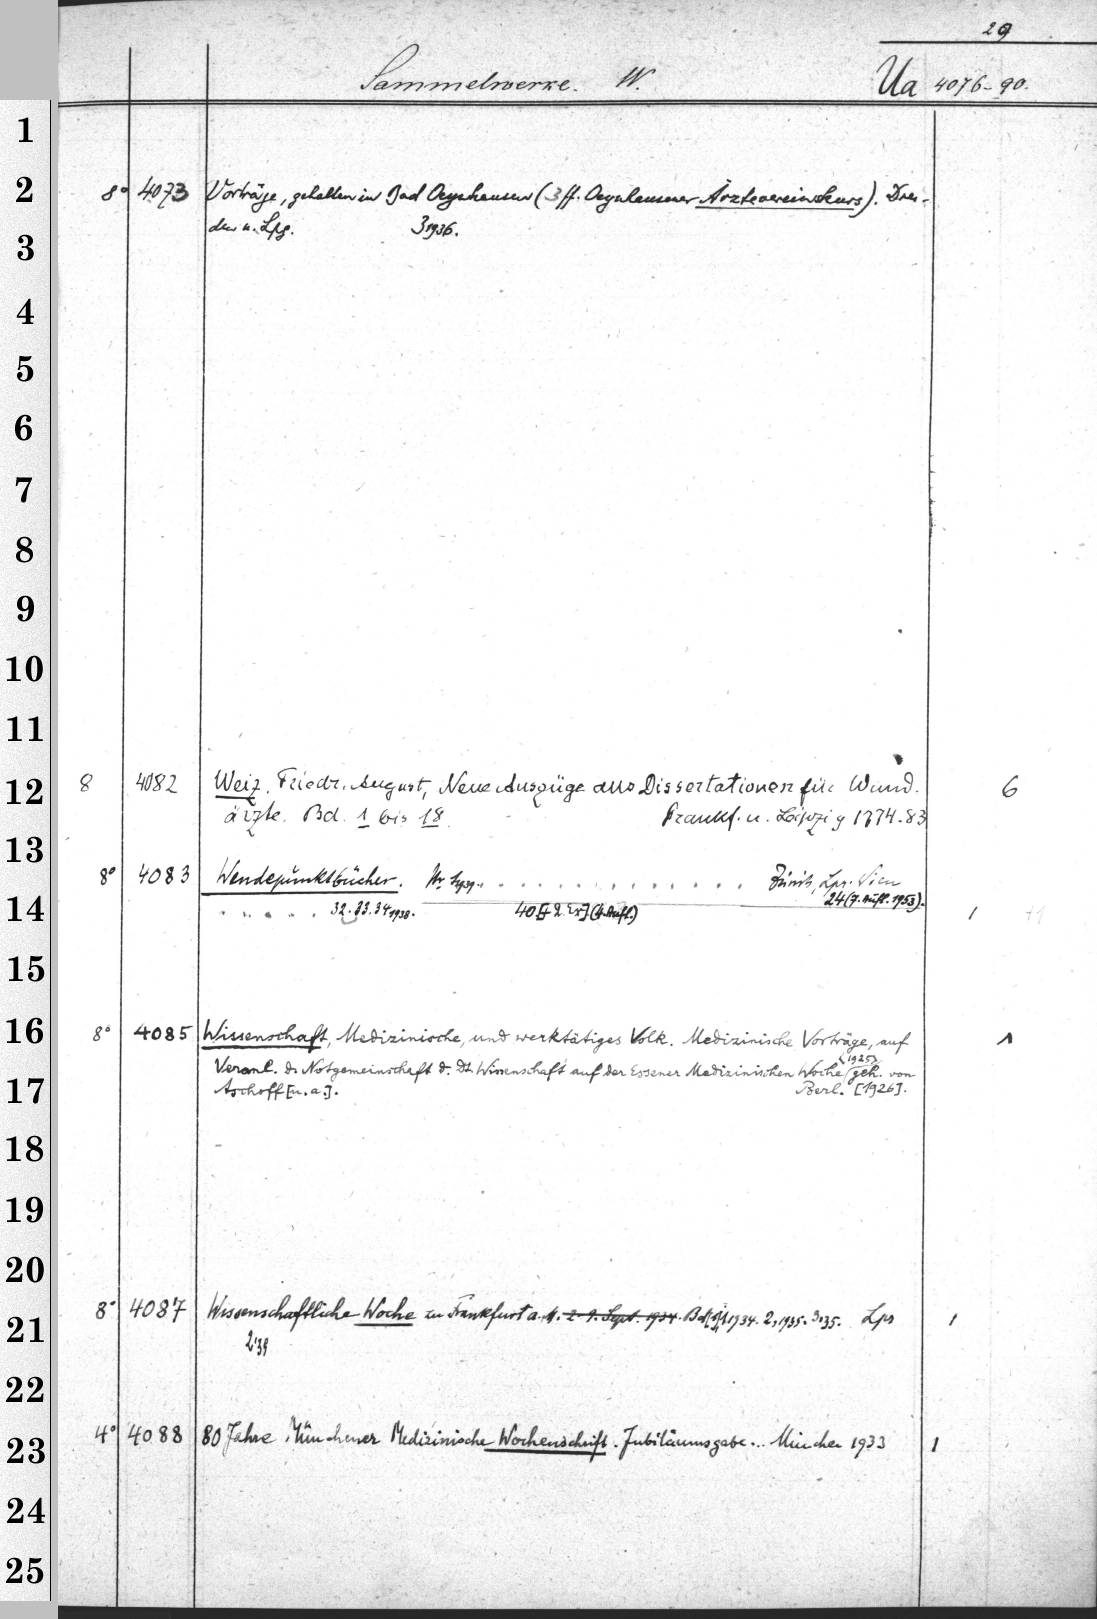 29
Sammelwerke. W. Ua 4076-90.
1
2 8° 4073 Vorträge, gehalten in Bad Oeynhausen (3 ff. Oeynhausener Ärztevereinskurs). Dres-
den u. Lpg. 3 1936.
3
4
5
6
7
8
9
10
11
12 8 4082 Weiz, Friedr. August, Neue Auszüge aus Dissertationen für Wund-
ärzte. Bd. 1 bis 18. Frankf. u. Leipzig 1774-83 6
13
8° 4083 Wendepunktbücher. Nr. Zürich, Lpz. Wien
24 (7. Aufl. 1953).
14 32. 33. 34 1938. 40 [+ 2 Ex] (4. Aufl.) 1 +1
15
16 8° 4085 Wissenschaft, Medizinische, und werktätiges Volk. Medizinische Vorträge, auf 1
(1925)
17 Veranl. d. Notgemeinschaft d. Dt. Wissenschaft auf der Essener Medizinischen Woche geh. von
Aschoff [u. a.]. Berl. [1926].
18
19
20
21 8° 4087 Wissenschaftliche Woche zu Frankfurt a. M. 2-9. Sept. 1934. 1934. 2, 1935. 3, 35. Lpz 1
2 '39
22
23 4° 4088 80 Jahre Münchener Medizinische Wochenschrift. Jubiläumsgabe... München 1933 1
24
25